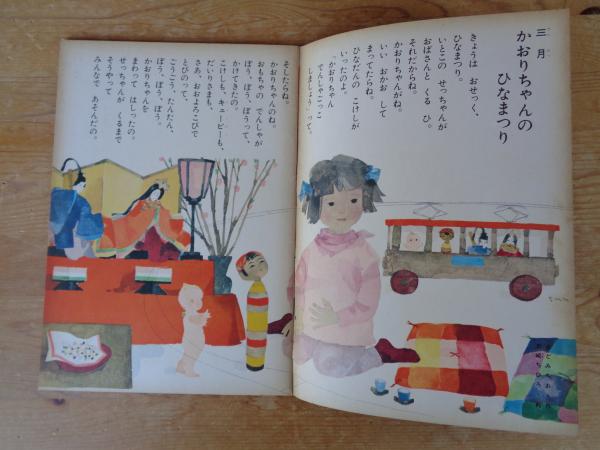 三月
かおりちゃんの
ひなまつり
きょうは おせっく、
ひなまつり。
いとこの せっちゃんが
おばさんと くる ひ。
それだからね。
かおりちゃんがね。
いい おかお して
まってたらね。
ひなだんの こけしが
いったのよ。
「かおりちゃん
でんしゃごっこ
しましょう」って。
そしたらね。
かおりちゃんのね。
おもちゃの でんしゃが
ぽう、ぽう、ぽうって、
かけてきたの。
こけしも、キューピーも、
だいりさまも、
さあ、おおよろこびで
とびのって、
ごうごう、たんたん、
ぽう、ぽう、ぽう。
かおりちゃんを
まわって はしったの。
せっちゃんが くるまで
そうやって
みんなで あそんだの。